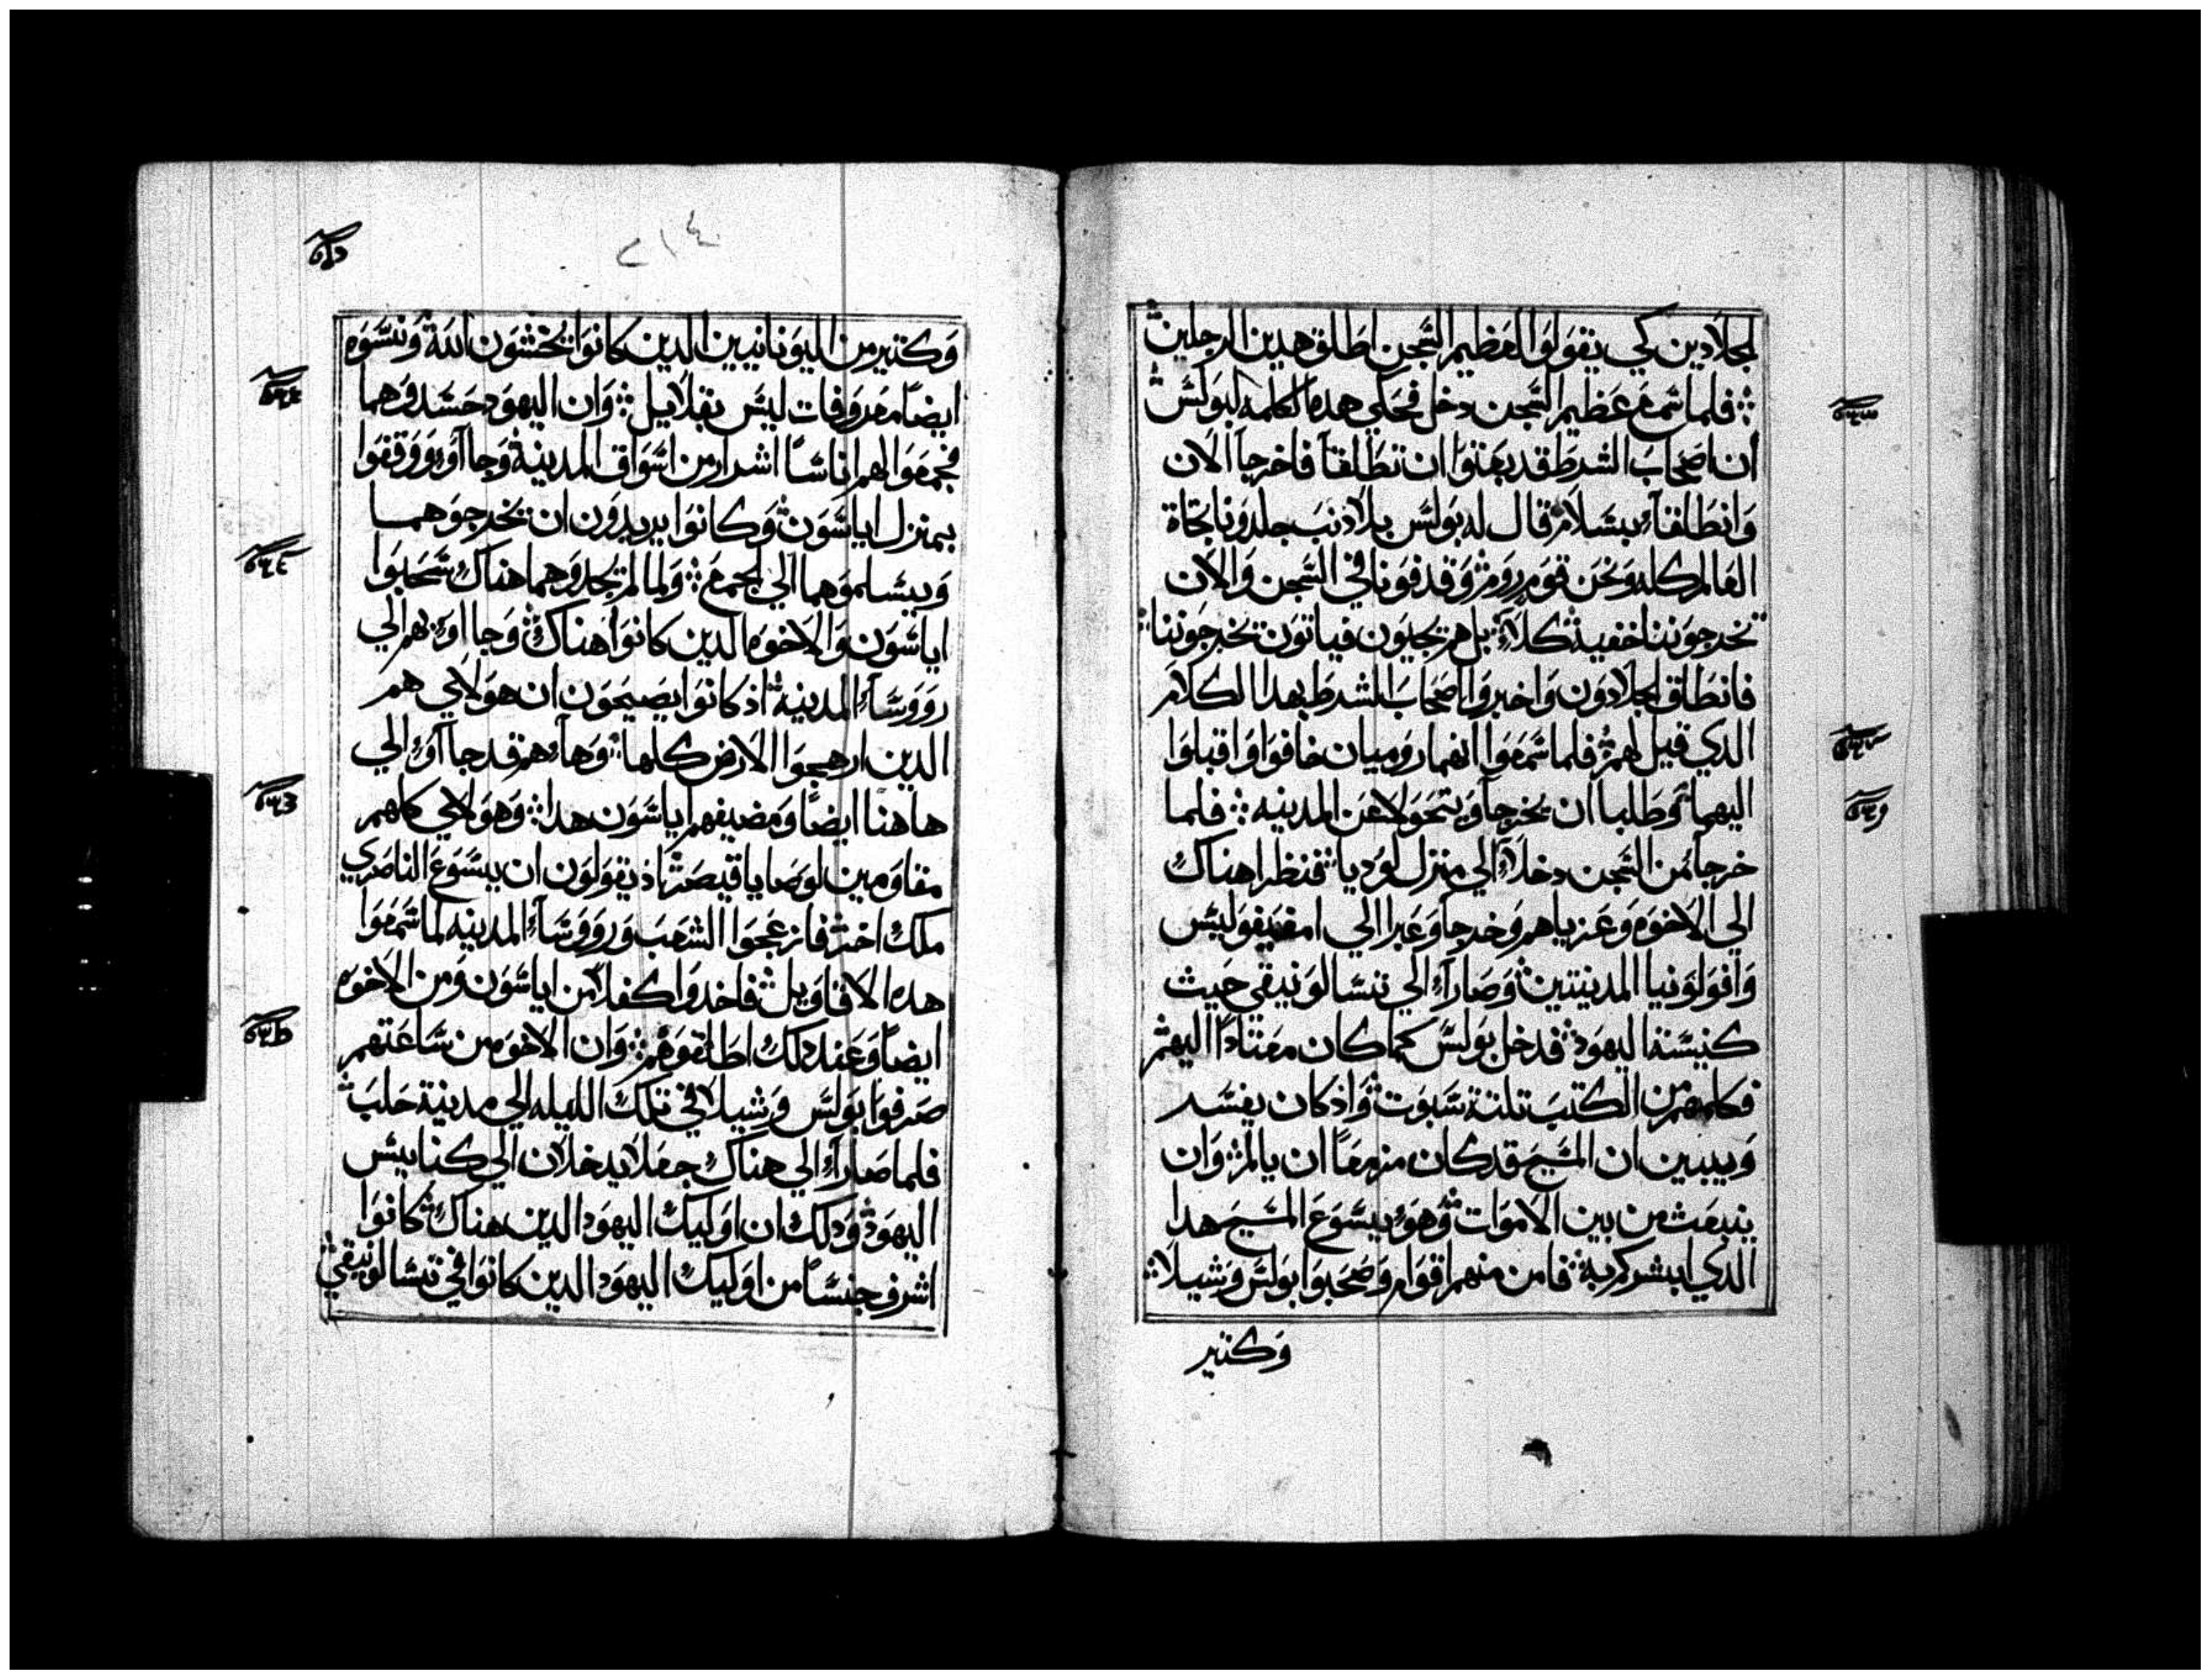 لجلادين كي يقولوا لعظيم السجن اطلق هدين الرجلين
فلما سمع عظيم السجن دخل فحكي هده الكلمه لبولس
أن اصحاب الشرط قد بعتوا ان تطلقا فاخرجا الان
وانطلقا بسلام قال له بولس بلا ذنب جلدونا تجاة
العالم كله ونحن قوم روم وقدفونا في السجن والان
تخرجوننا خفية كلا بل هم يجيون فياتون تخرجوننا
فانطلق الجلادون واخبروا اصحاب الشرط بهدا الكلام
الدي قيل لهم فلما سمعوا انهما روميان خافوا واقبلوا
اليهما وطلبا ان يخرجا ويتحولا عن المدينه فلما
خرجا من السجن دخلا الي منزل لوديا فنظرا هناك
الي الاخوه وعزياهم وخرجا وعبرا الي امفيفوليس
وافولونيا المدينتين وصارا الي تسالونيقي حيث
كنيسة اليهود فدخل بولس كما كان معتادا اليهم
فكلمهم من الكتب تلتة سبوت واذ كان يفسر
ويبين ان المسيح قد كان مزمعا ان يالم وان
ينبعث من بين الاموات وهو يسوع المسيح هدا
الدي ابشركم به فامن منهم اقوام وصحبوا بولس وشيلا
وكتير
٢١٤
وكتير من اليونانيين الدين كانوا يخشون الله ونسوه
ايضا معروفات ليس بقلايل وان اليهود حسدوهما
فجمعوا لهم اناسا اشرار من اسواق المدينة وجاآو ووقفوا
بمنزل اياسون وكانوا يريدون ان يخرجوهما
ويسلموهما الي الجمع ولما لم يجدوهما هناك سحبوا
اياسون والاخوه الدين كانوا هناك وجااو بهم الي
رووسآ المدينة اذ كانوا يصيحون ان هولاي هم
الدين ارهجوا الارض كلها وها هم قد جاآو الي
هاهنا ايضا ومضيفهم اياسون هدا وهولاي كلهم
مقاومين لوصايا قيصر اذ يقولون ان يسوع الناصري
ملك اخر فانزعجوا الشعب ورووسآ المدينه لما سمعوا
هده الاقاويل فاخدوا كفلا من اياسون ومن الاخوه
ايضا وعند دلك اطلقوهم وان الاخوه من ساعتهم
صرفوا بولس وشيلا في تلك الليله الي مدينة حلب
فلما صارا الي هناك جعلا يدخلان الي كنايس
اليهود ودلك ان اوليك اليهود الدين هناك كانوا
اشرف جنسا من اوليك اليهود الدين كانوا في تسالونيقي